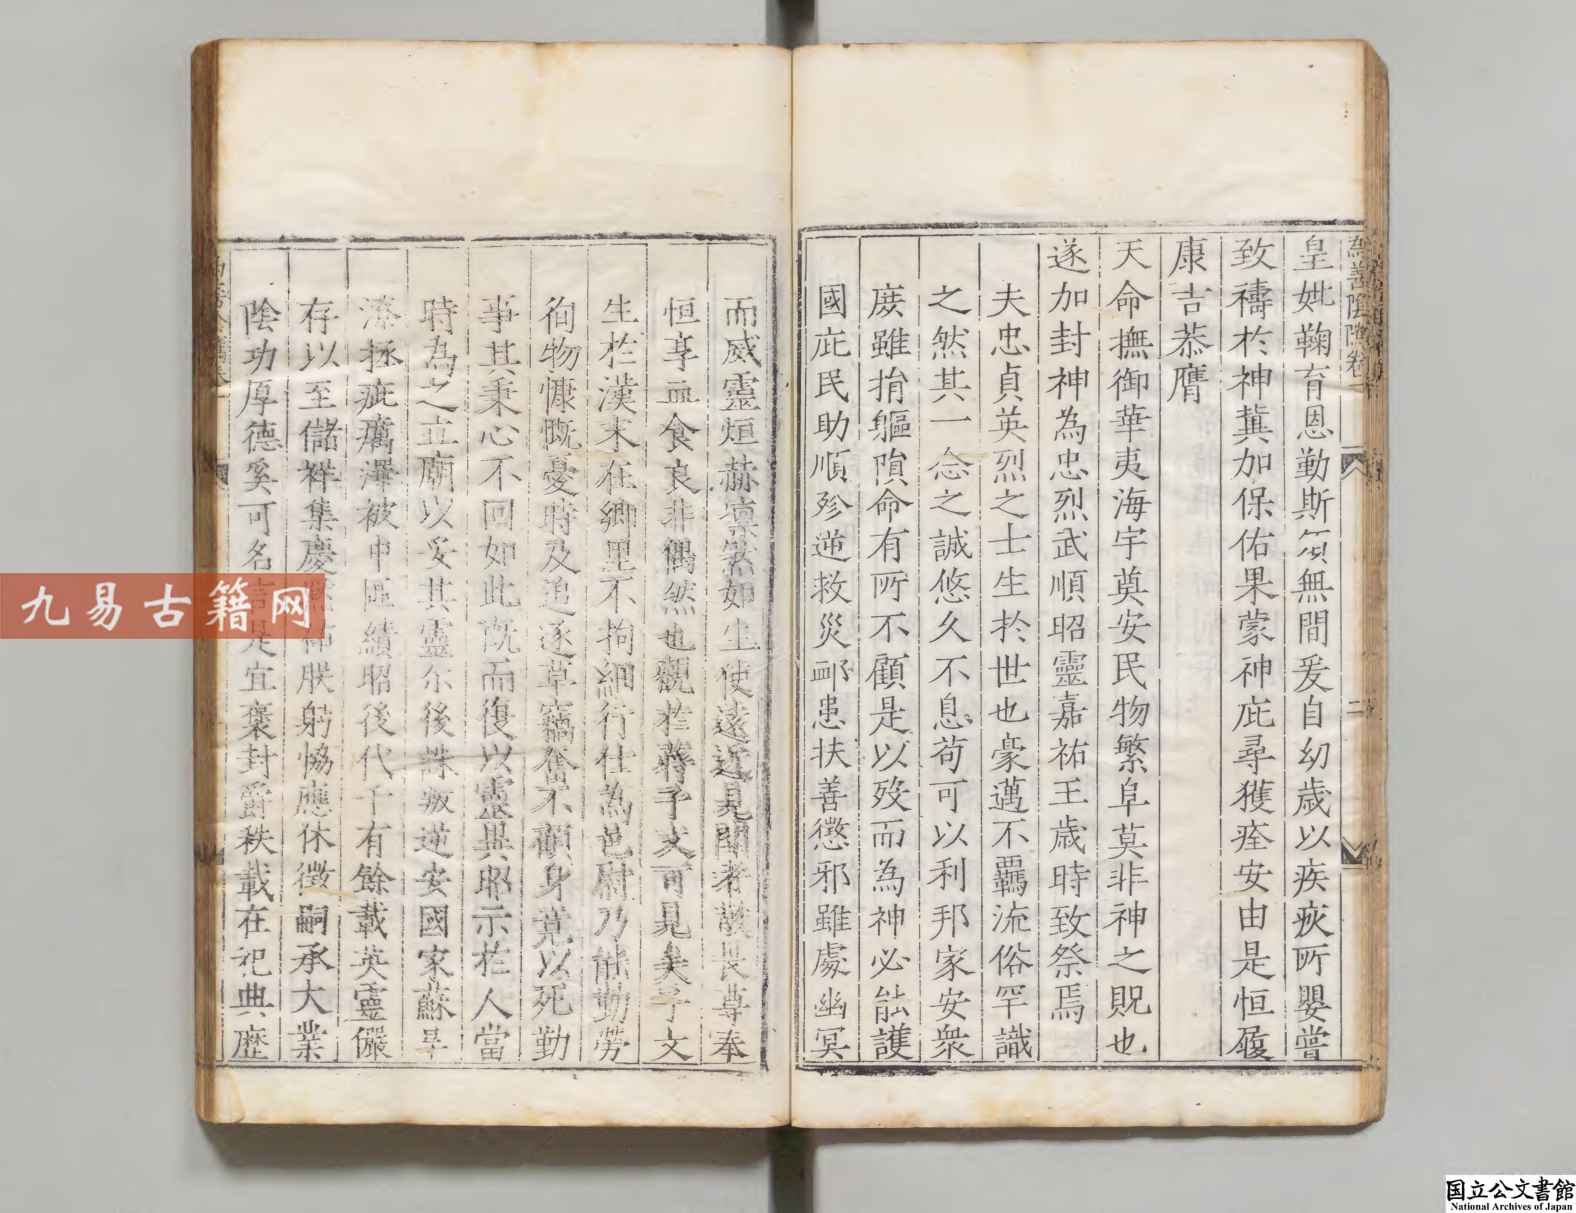 為善陰隲卷十
二
皇妣鞠育恩勤斯須無間爰自幼歲以疾疢所嬰嘗
致禱於神冀加保佑果蒙神庇尋獲痊安由是恒履
康吉恭膺
天命撫御華夷海宇奠安民物繁阜莫非神之貺也
遂加封神為忠烈武順昭靈嘉祐王歲時致祭焉
夫忠貞英烈之士生於世也豪邁不羈流俗罕識
之然其一念之誠悠久不息苟可以利邦家安衆
庶雖捐軀隕命有所不顧是以歿而為神必能護
國庇民助順殄逆救災卹患扶善懲邪雖處幽冥
而威靈烜赫凛然如生使遠近見聞者敬畏尊奉
恒享血食良非偶然也觀於蔣子文可見矣子文
生於漢末在鄉里不拘細行仕為邑尉乃能勤勞
徇物慷慨憂時及追逐草竊奮不顧身竟以死勤
事其秉心不回如此既而復以靈異昭示於人當
時為之立廟以妥其靈尔後誅叛逆安國家蘇旱
潦拯疵癘澤被中區績昭後代于有餘載英靈儼
存以至儲祥集慶默祐朕躬恊應休徵嗣承大業
陰功厚德奚可名言是宜褒封爵秩載在祀典歷
九易古籍网
国立公文書館
National Archives of Japan